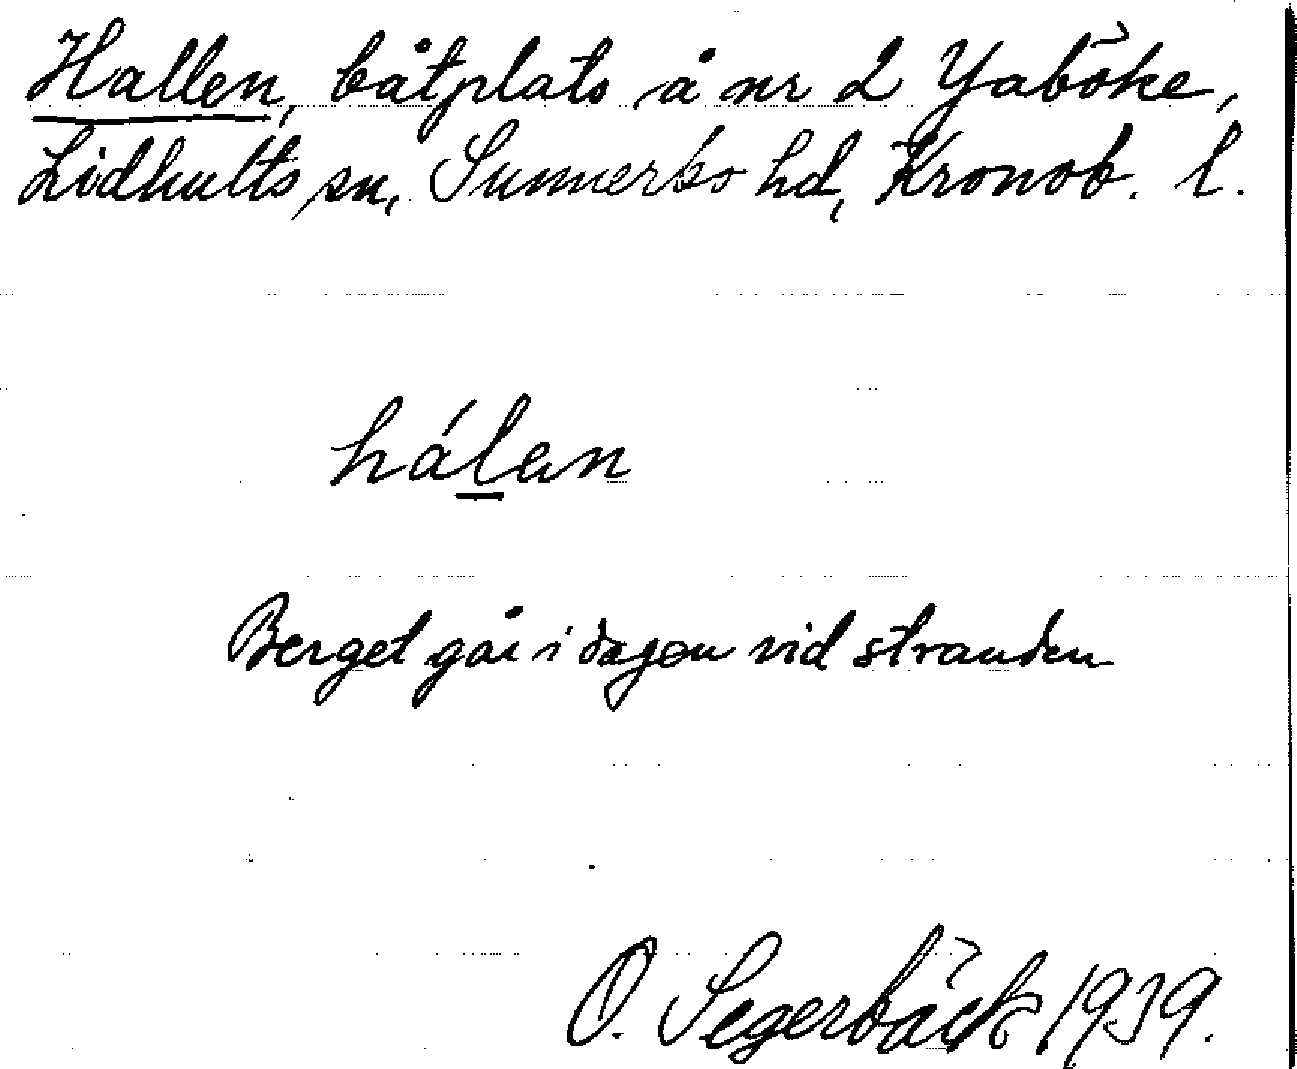 Hallen, båtplats å nr 2 Yaböke,
Lidhults sn, Sunnerbo hd, Kronob. l.
hálen
Berget går i dagen vid stranden
O. Segerbäck 1939.